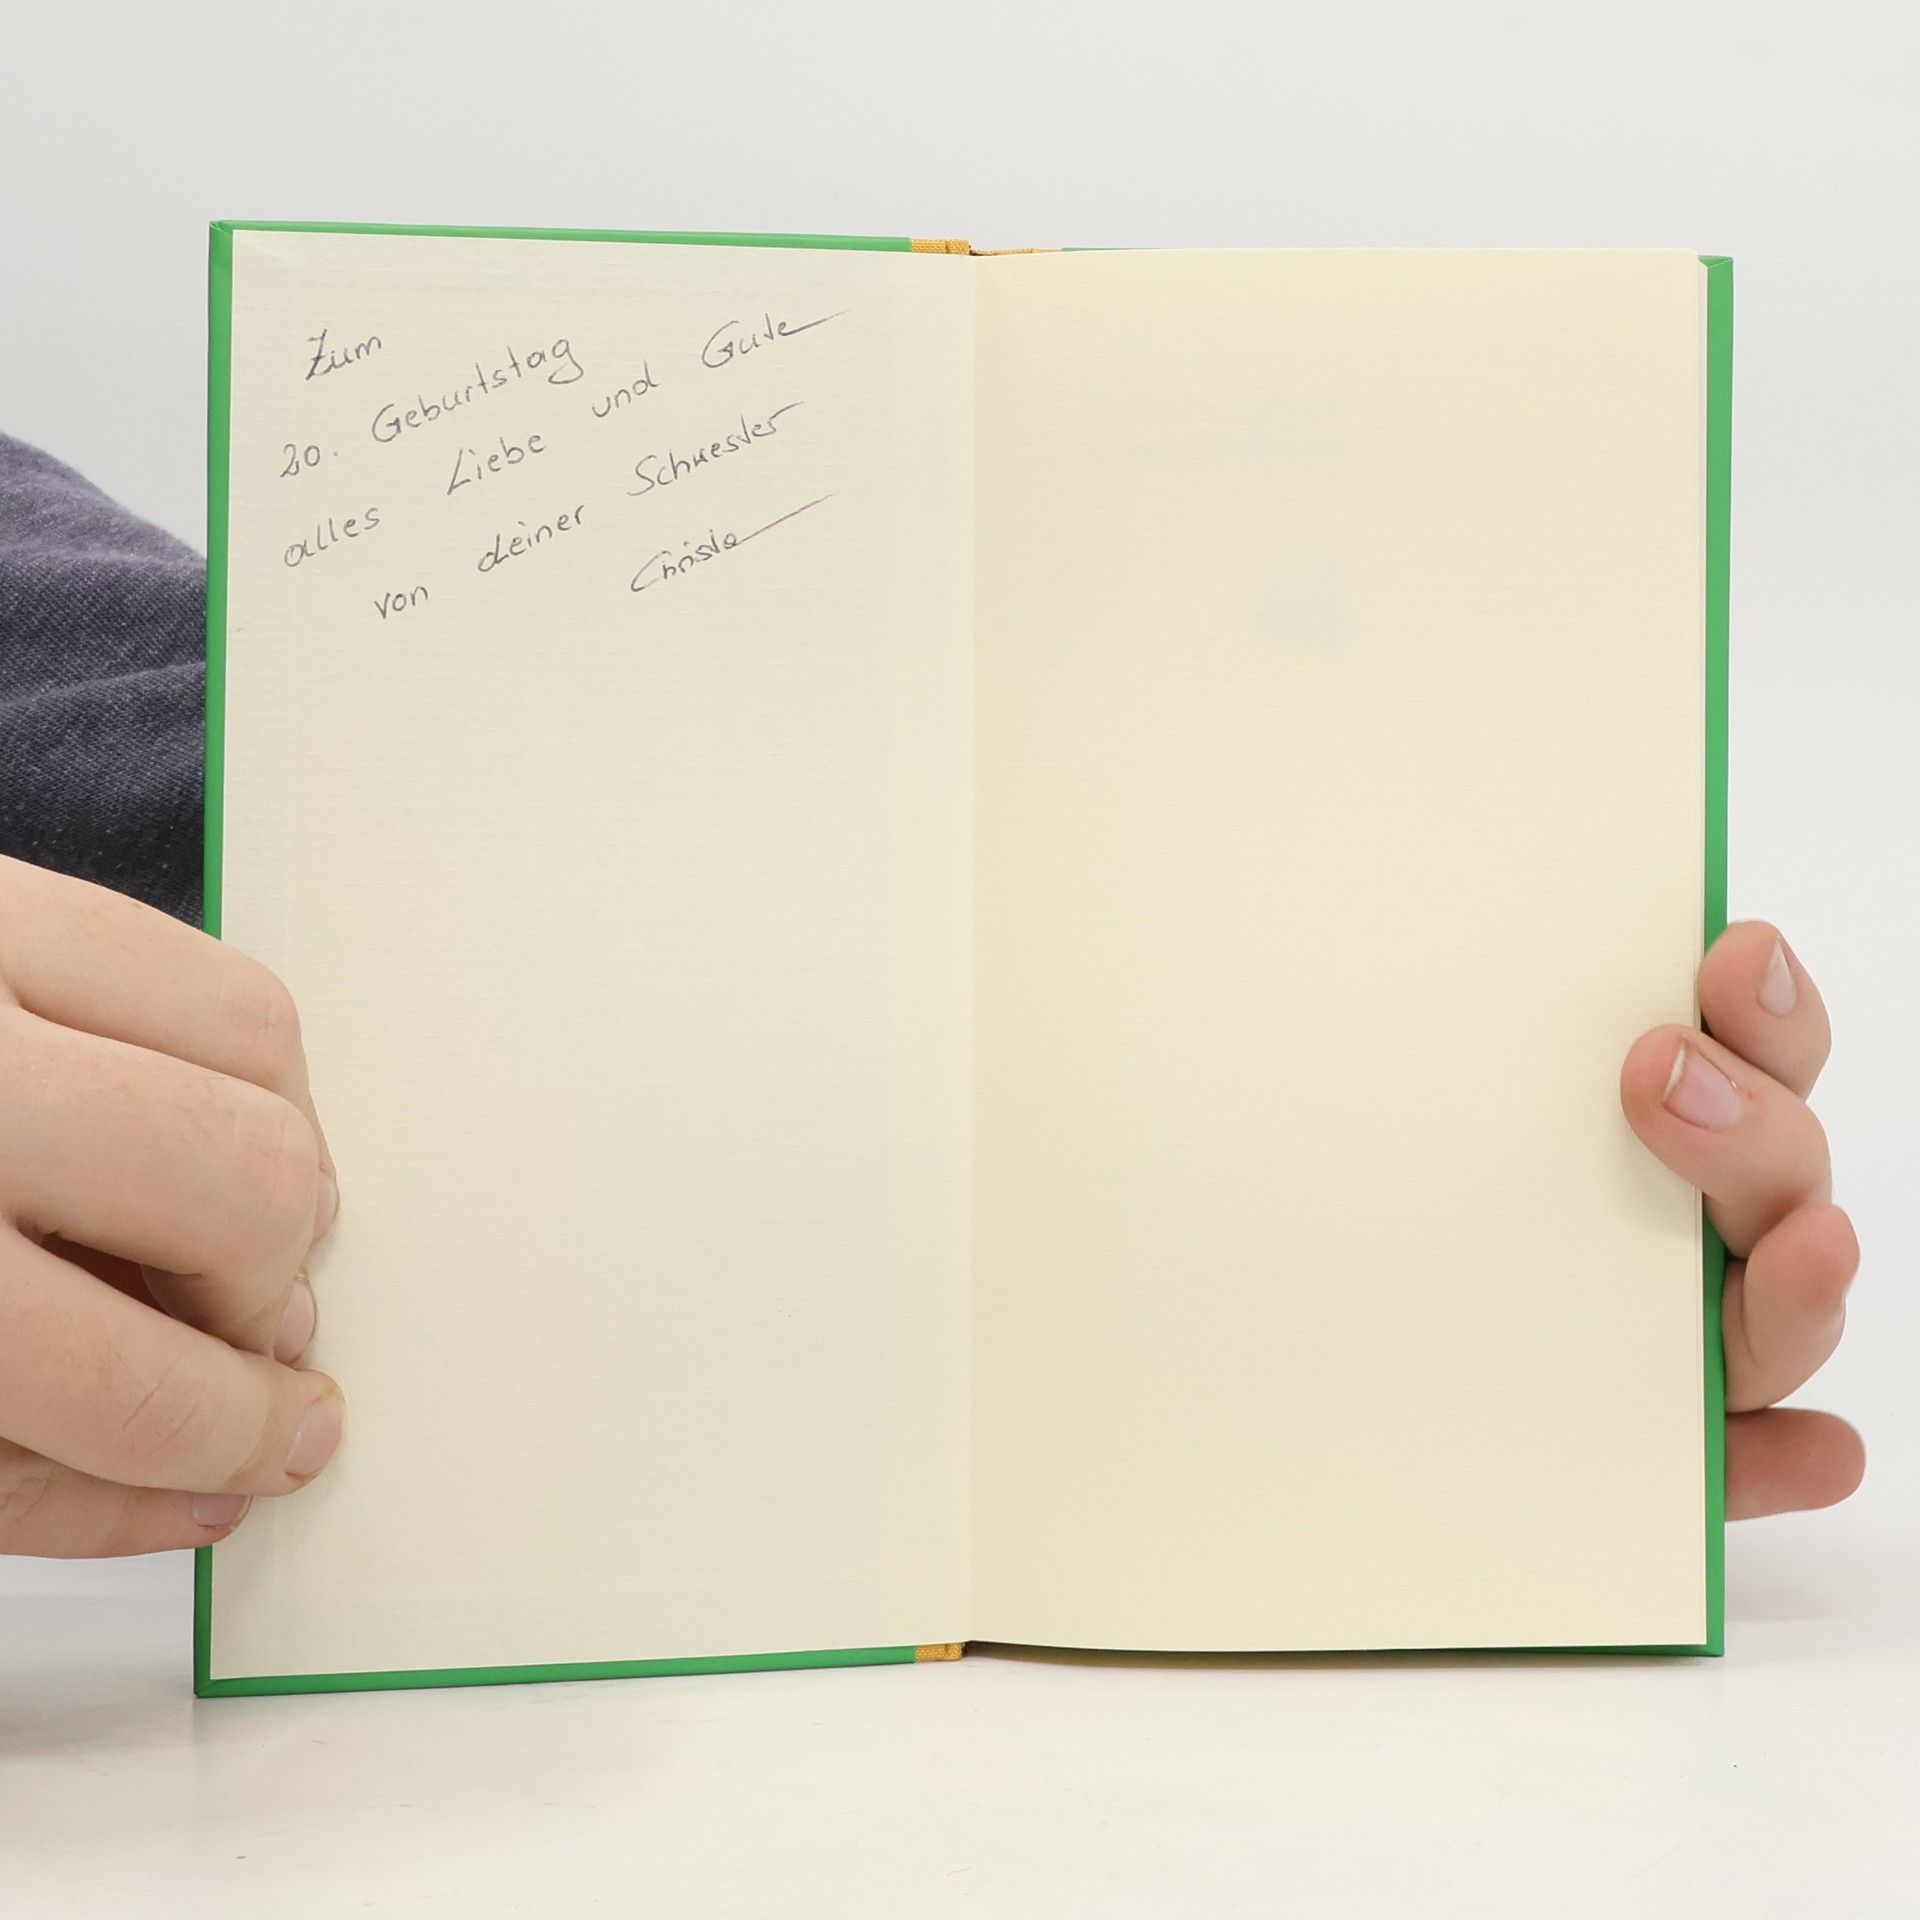 Zum
20. Geburtstag
alles Liebe und Gute
von deiner Schwester
Christa